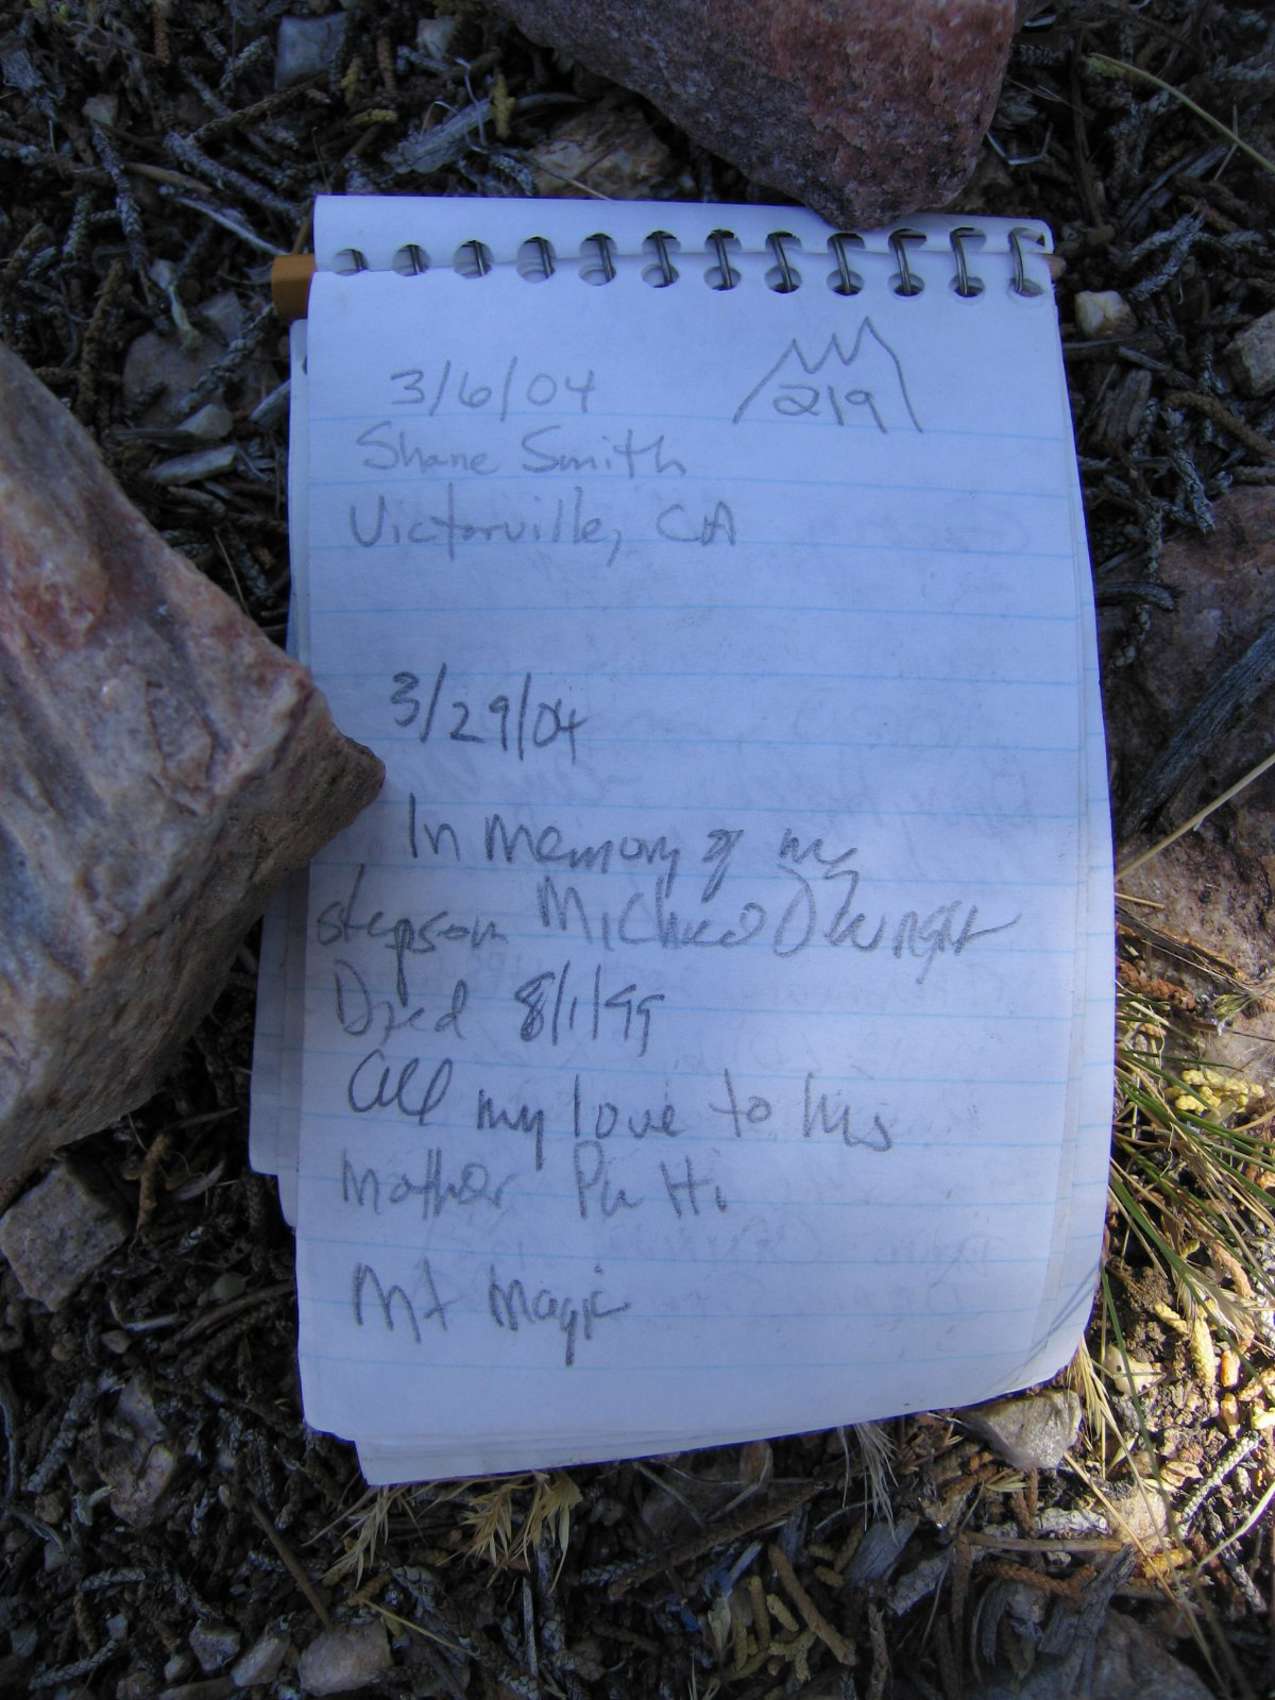 3/6/04
219
Shane Smith
Victorville, CA
3/29/04
In memory of my
stepson Michael
Died 8/1/99
All my love to his
Mother Patti
Mt Magic